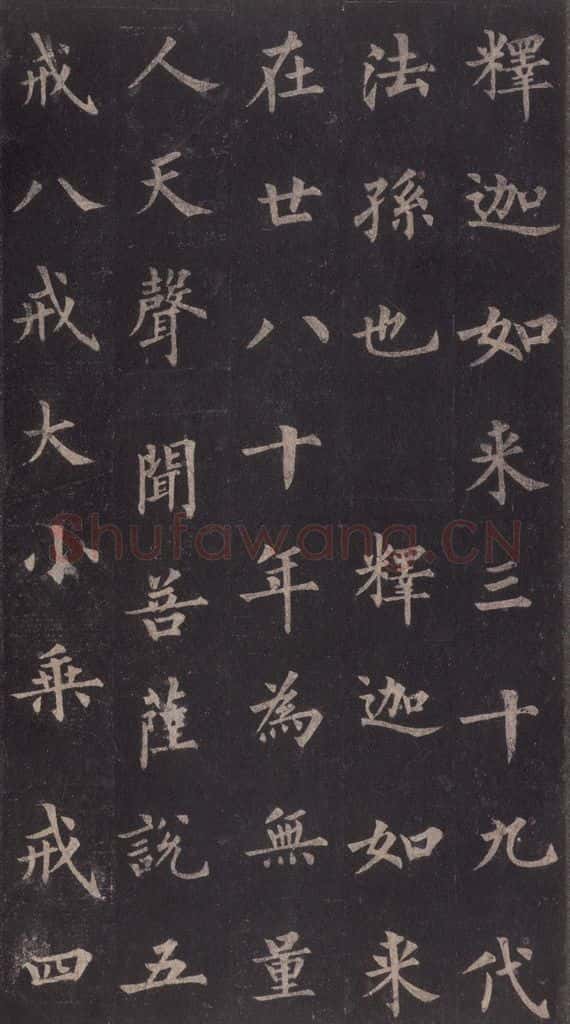 釋迦如来三十九代
法孫也　釋迦如来
在廿八十年為無量
人天聲聞菩薩說五
戒八戒大小乗戒四
Shufawang.CN